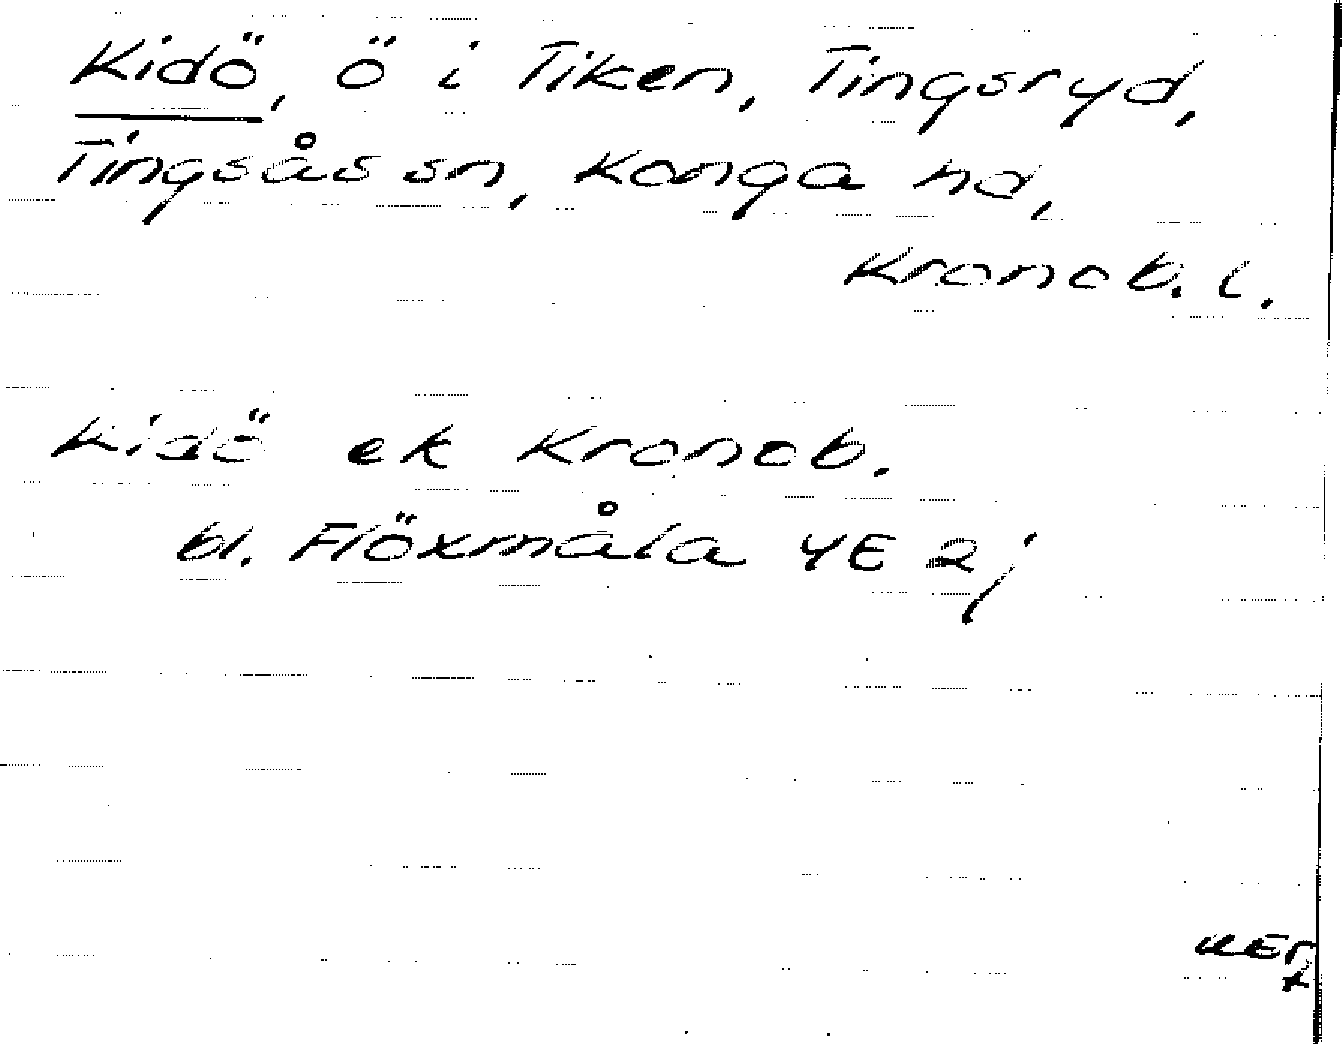 Kidö, ö i Tiken, Tingsryd,
Tingsås sn, Konga hd,
Kronob. l.
Kidö ek Kronob.
bl. Flöxmåla 4E 2j